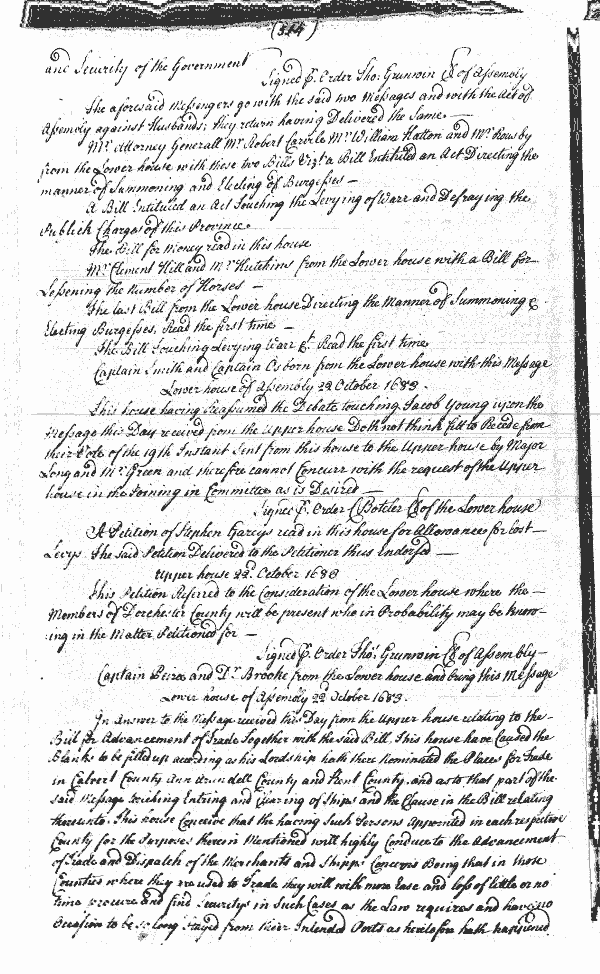 (514)
and Security of the Government
Signed p. Order Tho: Grunwin Cl of Assembly
The aforesaid Messengers go with the said two Messages and with the Act of
Assembly against Husbands; they return having Delivered the Same.—
Mr. Attorney Generall Mr. Robert Carvile Mr. William Hatton and Mr. Rousby
from the Lower house with these two Bills Vizt. a Bill Entituled an Act Directing the
manner of Summoning and Electing of Burgesses —
A Bill Intituled an Act Touching the Levying of Warr and Defraying the
Publick Charge of this Province.
The Bill for Money read in this house
Mr. Clement Hill and Mr. Hutchins from the Lower house with a Bill for
Lessening the Number of Horses —
The last Bill from the Lower house Directing the Manner of Summoning &
Electing Burgesses, Read the first time —
The Bill Touching Levying Warr &c. Read the first time
Captain Smith and Captain Osborn from the Lower house with this Message
Lower house of Assembly 22 October 1683.
This house having Reassumed the Debate touching Jacob Young upon the
Message this Day received from the Upper house Doth not think fitt to Recede from
their Vote of the 19th Instant Sent from this house to the Upper house by Major
Long and Mr. Green and therefore cannot Concurr with the request of the Upper
house in the Joining in Committee as is Desired —
Signed p. Order C Boteler Cl of the Lower house
A Petition of Stephen Garys read in this house for Allowance for lost—
Levys. The said Petition Delivered to the Petitioner thus Endorsed —
Upper house 22d. October 1683
This Petition Referred to the Consideration of the Lower house where the —
Members of Dorchester County will be present who in Probability may be know-
-ing in the Matter Petitioned for —
Signed p. Order Tho: Grunwin Cl of Assembly—
Captain Peirce and Dr. Brooke from the Lower house and bring this Message
Lower house of Assembly 22d October 1683.
In Answer to the Message received this Day from the Upper house relating to the—
Bill for Advancement of Trade Together with the said Bill, This house have Caused the
Blanks to be filled up according as his Lordship hath there Nominated the Places for Trade
in Calvert County Ann Arundell County and Kent County, and as to that part of the
said Message touching Entring and Clearing of Ships and the Clause in the Bill relating
thereunto. This house Conceive that the having Such Persons Appointed in each respective
County for the Purposes therein Mentioned will highly Conduce to the Advancement
of Trade and Dispatch of the Merchants and Shipps Concerns Being that in those
Counties where they are used to Trade they will with more Ease and loss of little or no
time procure and find Securitys in Such Cases as the Law requires and have no
Occasion to be so long Stayed from their Intended Ports as heretofore hath happened